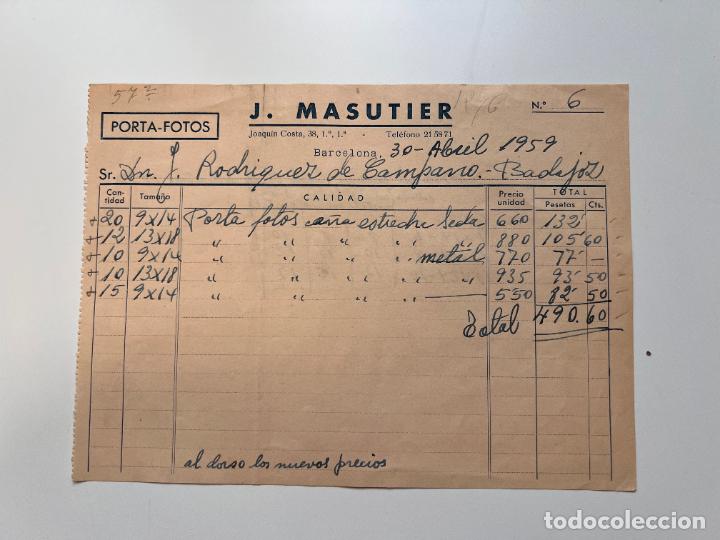 57
J. MASUTIER
N.º 6
PORTA-FOTOS
Joaquín Costa, 38, 1.º, 1.ª - Teléfono 21 58 71
Barcelona, 30 - Abril 1959
Sr. Dn. J. Rodriguez de Campano. - Badajoz
Cantidad Tamaño CALIDAD Precio unidad TOTAL Pesetas Cts.
+20 9x14 Porta fotos caña estrecha Seda 6 60 132
+12 13x18 " " " " " 8 80 105 60
+10 9x14 " " " " metál 7 70 77 —
+10 13x18 " " " " " 9 35 93 50
+15 9x14 " " " " — 5 50 82 50
Total 490.60
al dorso los nuevos precios
todocoleccion.net